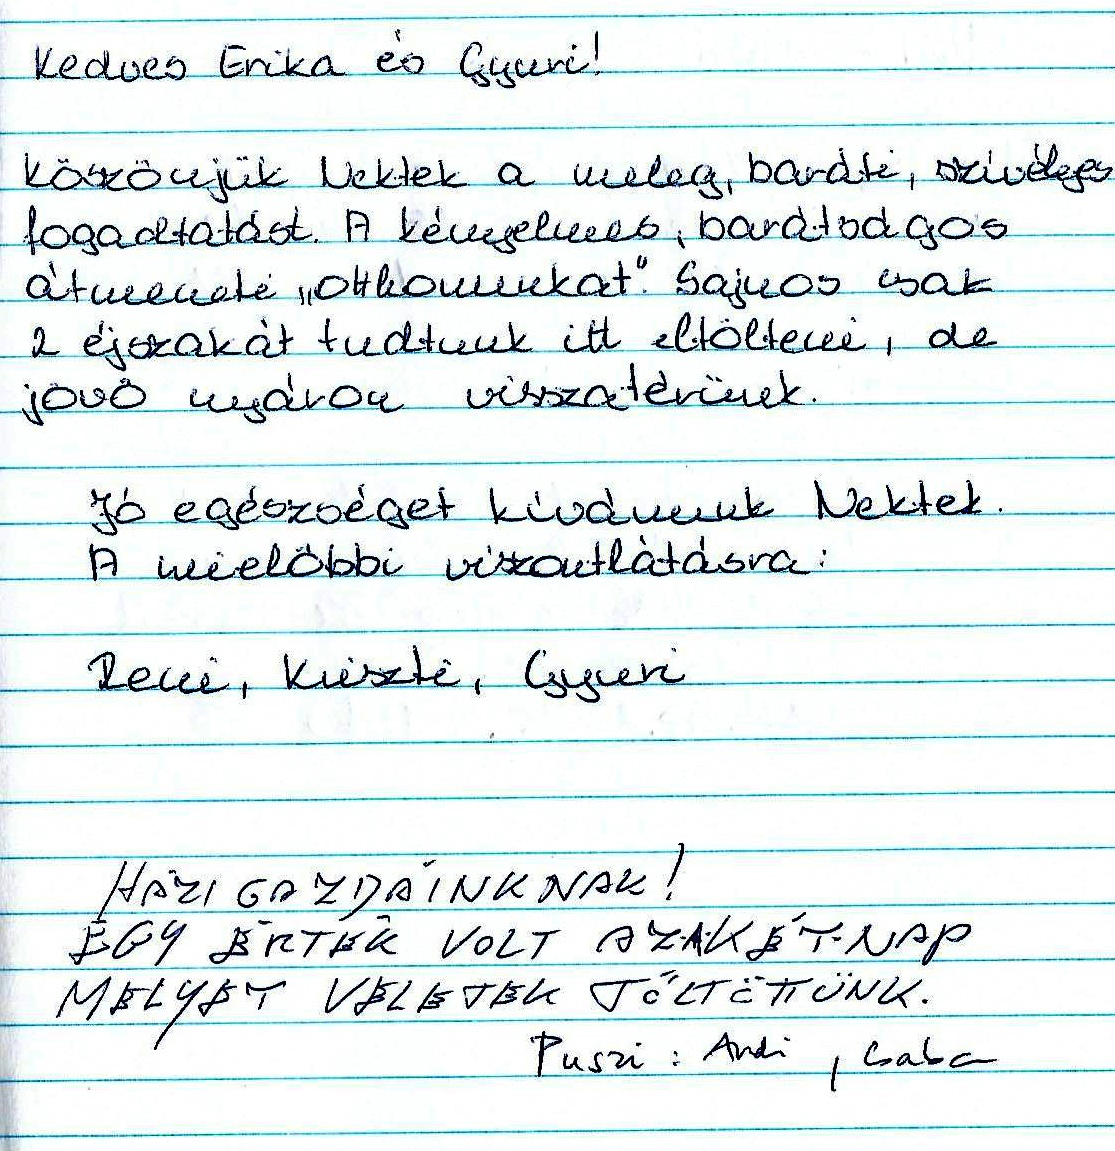 Kedves Erika és Gyuri!
Köszönjük Nektek a meleg, baráti, szívélyes
fogadtatást. A kényelmes, barátságos
átmeneti „otthonunkat". Sajnos csak
2 éjszakát tudtunk itt eltölteni, de
jövő nyáron visszatérünk.
Jó egészséget kívánunk Nektek.
A mielőbbi viszontlátásra:
Reni, Kriszti, Gyuri
HÁZI GAZDÁINKNAK!
EGY ÉRTÉK VOLT AZ A KÉT NAP
MELYET VELETEK TÖLTÖTTÜNK.
Puszi: Andi, Csaba